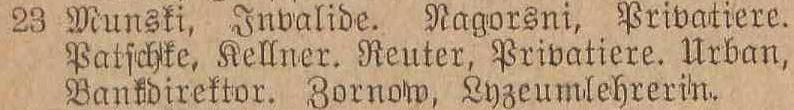 23 Munski, Invalide. Nagorsni, Privatiere.
Patschke, Kellner. Reuter, Privatiere. Urban,
Bankdirektor. Zornow, Lyzeumlehrerin.